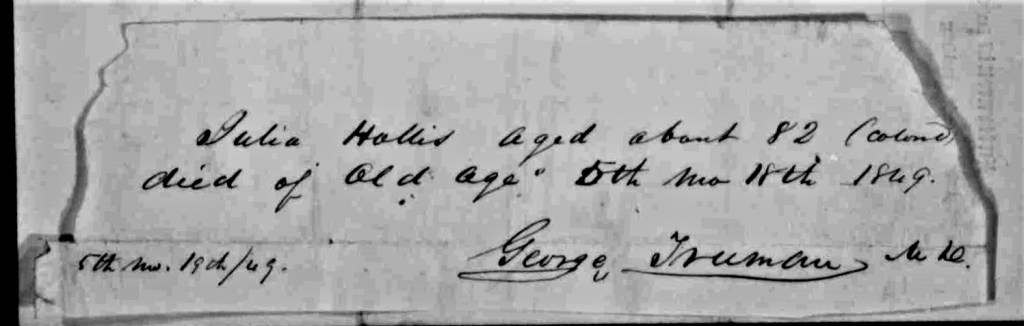 Julia Hollis Aged about 82 (Colored)
died of "Old Age" 5th Mo 18th 1849.
5th Mo. 19th/49. George Truman M.D.